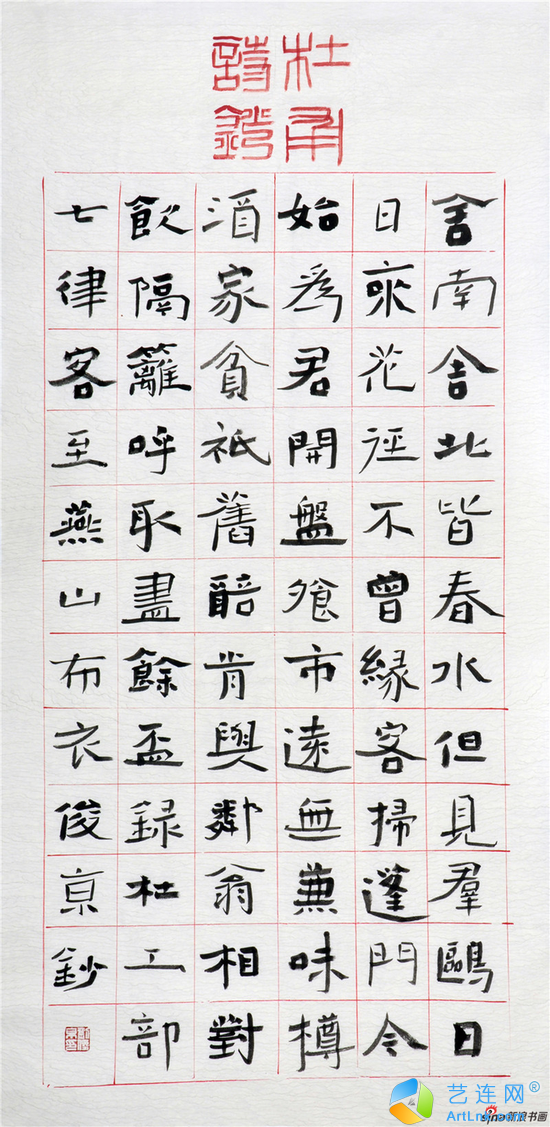 杜甫
詩鈔
舍南舍北皆春水但見羣鷗日
日來花徑不曾緣客掃蓬門今
始為君開盤飧市遠無兼味樽
酒家貧祇舊醅肯與鄰翁相對
飲隔籬呼取盡餘盃録杜工部
七律客至燕山布衣俊京鈔
艺连网®
sina新浪书画